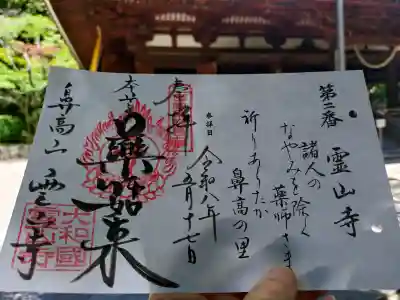 第二番
霊山寺
諸人の
なやみを除く
薬師さま
祈りあらたか
鼻高の里
奉拝日
令和八年
五月十七日
奉拝
本尊
薬師如来
鼻高山
霊山寺
大和國